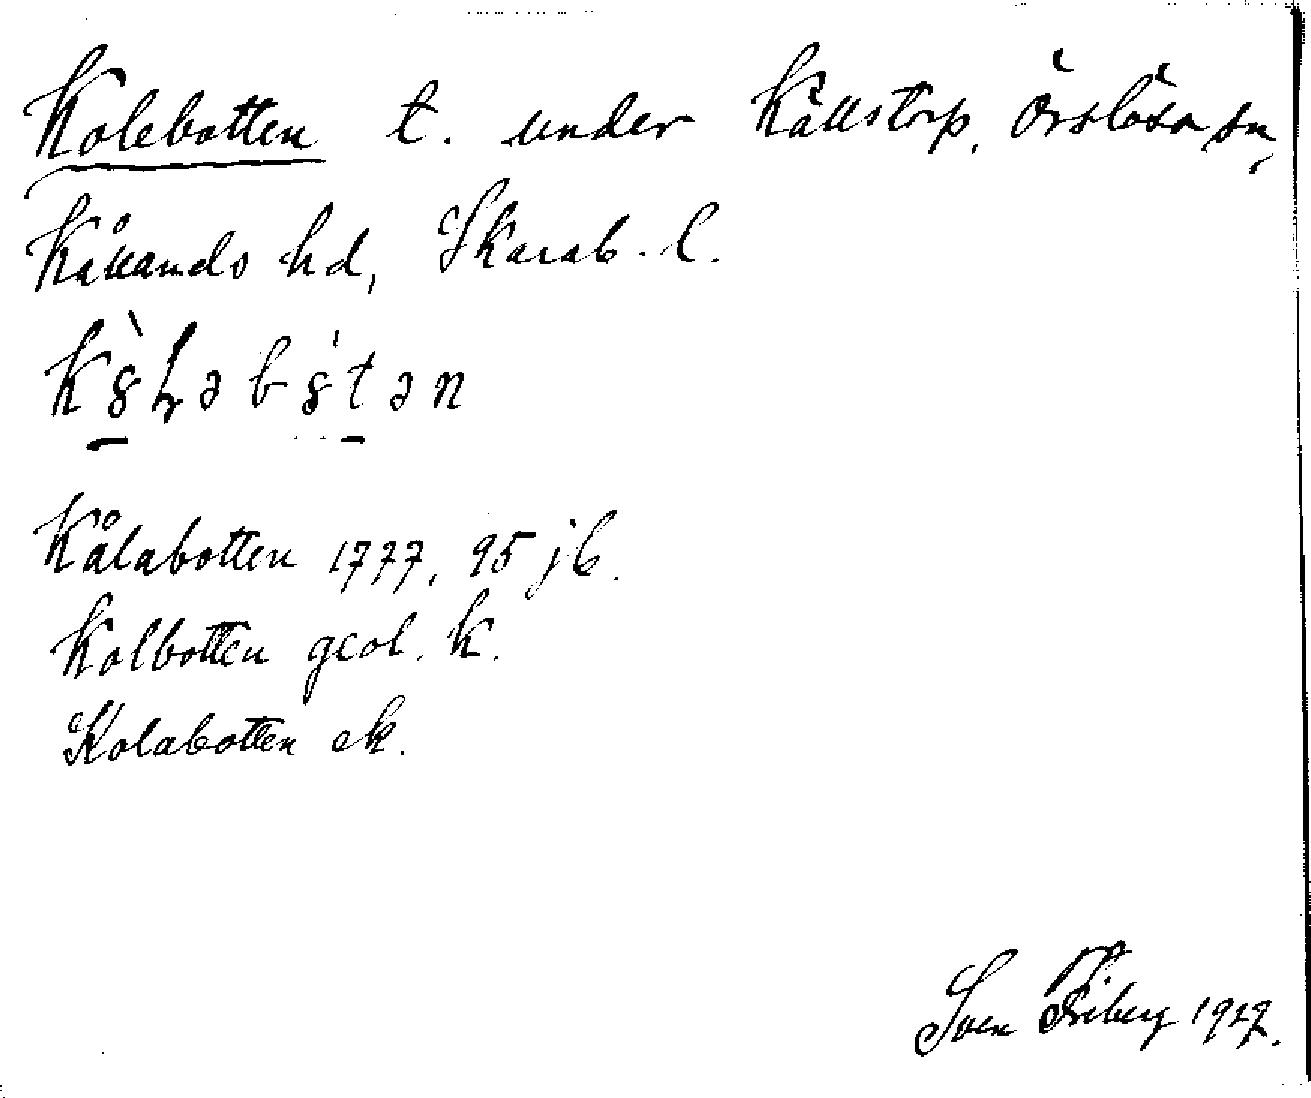 Kolebotten t. under Källstorp, Örslösa sn,
Kållands hd, Skarab. l.
Kålabotten 1777, 95 jb.
Kolbotten geol. k.
Kolabotten ek.
Sven Friberg 1927.